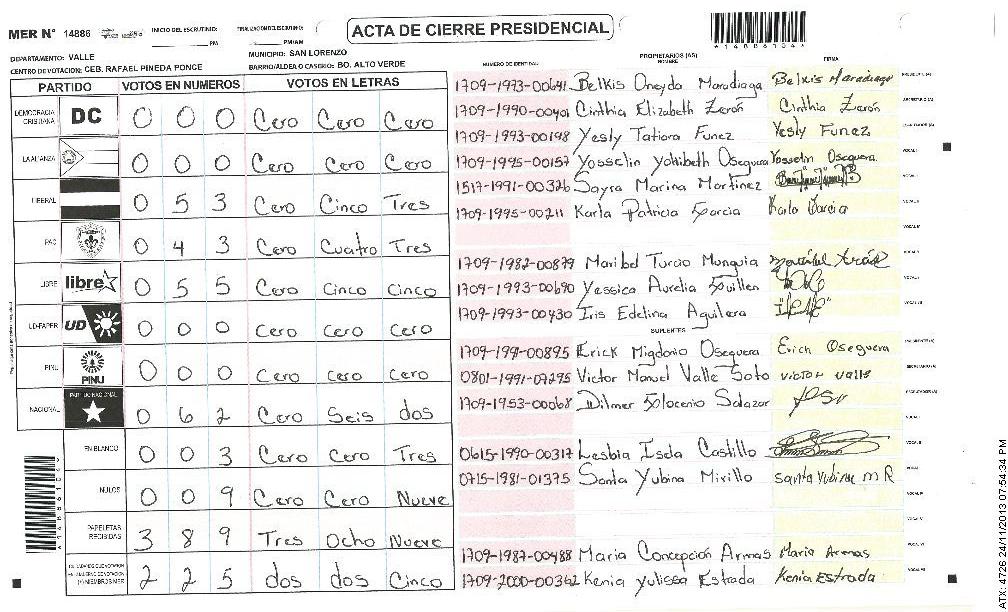 MER N° 14886
INICIO DEL ESCRUTINIO: PM
FINALIZACION DEL ESCRUTINIO: PM/AM
ACTA DE CIERRE PRESIDENCIAL
DEPARTAMENTO: VALLE
MUNICIPIO: SAN LORENZO
CENTRO DE VOTACION: CEB. RAFAEL PINEDA PONCE
BARRIO/ALDEA O CASERIO: BO. ALTO VERDE
PARTIDO VOTOS EN NUMEROS VOTOS EN LETRAS
DEMOCRACIA CRISTIANA DC 0 0 0 Cero Cero Cero
LA ALIANZA 0 0 0 Cero Cero Cero
LIBERAL 0 5 3 Cero Cinco Tres
PAC 0 4 3 Cero Cuatro Tres
LIBRE libre 0 5 5 Cero Cinco Cinco
UD-FAPER UD 0 0 0 Cero Cero Cero
PINU PINU 0 0 0 Cero Cero Cero
NACIONAL PARTIDO NACIONAL 0 6 2 Cero Seis dos
EN BLANCO 0 0 3 Cero Cero Tres
NULOS 0 0 9 Cero Cero Nueve
PAPELETAS RECIBIDAS 3 8 9 Tres Ocho Nueve
2 2 5 dos dos Cinco
NUMERO DE IDENTIDAD PROPIETARIOS (AS) NOMBRE FIRMA
1709-1973-00641 Belkis Oneyda Maradiaga Belkis Maradiaga
1709-1990-00401 Cinthia Elizabeth Zerón Cinthia Zerón
1709-1993-00198 Yesly Tatiana Funez Yesly Funez
1709-1995-00157 Yosselin Yohibeth Oseguera Yosselin Oseguera
1517-1991-00326 Sayra Marina Martinez
1709-1995-00211 Karla Patricia Garcia Karla Garcia
1709-1982-00879 Maribel Turcio Munguia
1709-1993-00690 Yessica Aurelia Guillen
1709-1993-00430 Iris Edelina Aguilera
SUPLENTES
1709-1991-00895 Erick Migdonio Oseguera Erick Oseguera
0801-1991-07295 Victor Manuel Valle Soto victor valle
1709-1953-00068 Dilmer Glocenio Salazar
0615-1990-00317 Lesbia Isda Castillo
0715-1981-01375 Santa Yubina Mirillo santa Yubina m R
1709-1987-00488 Maria Concepción Armas Maria Armas
1709-2000-00362 Kenia Yulissa Estrada Kenia Estrada
ATX: 4726 24/11/2013 07:54:34 PM